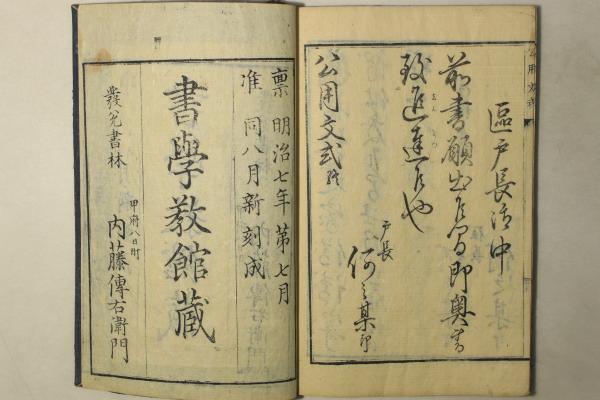 區戸長御中
前書願出候間即奥書
致進達候也
戸長
何之某印
公用文式終
稟明治七年第七月
准同八月新刻成
書學教館蔵
發兌書林
甲府八日町
内藤傳右衛門